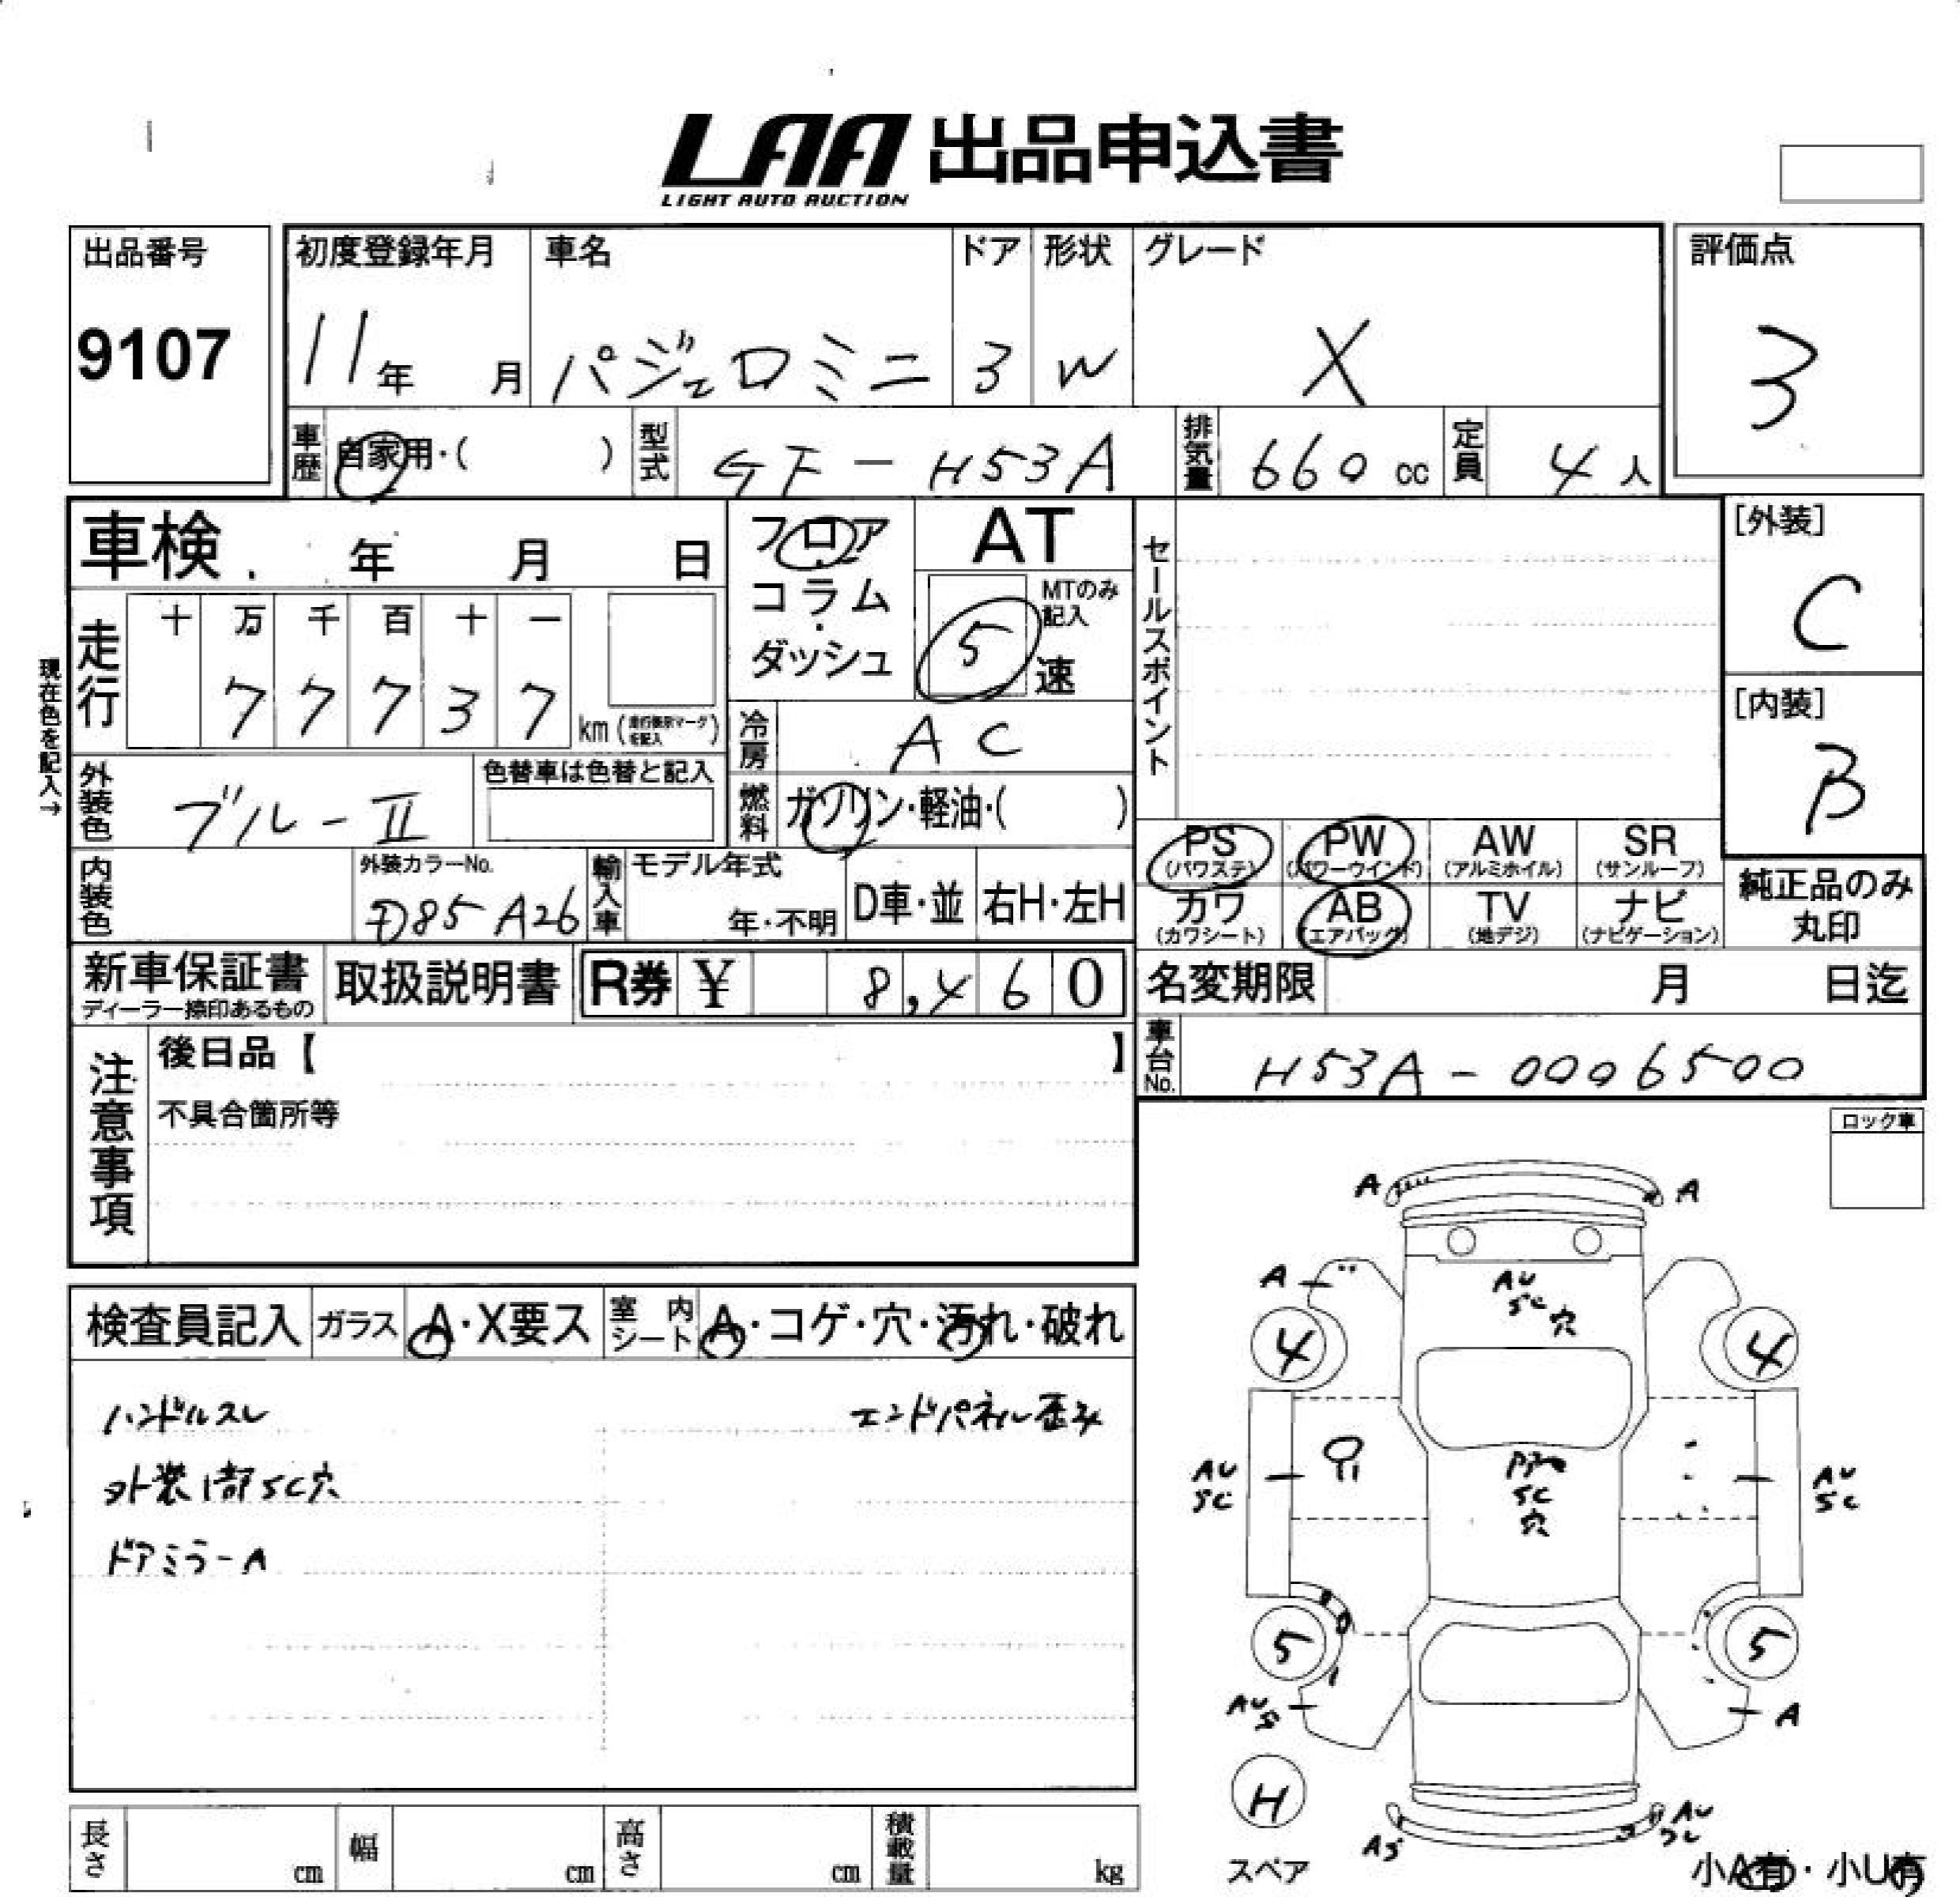 LAA 出品申込書
LIGHT AUTO AUCTION
出品番号
9107
初度登録年月
11年 月
車名
パジェロミニ
ドア
3
形状
W
グレード
X
評価点
3
車歴 自家用・( )
型式 GF-H53A
排気量 660 cc
定員 4 人
車検 年 月 日
フロア
コラム
ダッシュ
AT
MTのみ記入
5 速
セールスポイント
[外装]
C
[内装]
B
現在色を記入→
走行
十 万 千 百 十 一
7 7 7 3 7
km (走行表示マークを記入)
冷房 AC
燃料 ガソリン・軽油・( )
外装色 ブルーII
色替車は色替と記入
内装色
外装カラーNo.
D85 A26
輸入車
モデル年式
年・不明
D車・並
右H・左H
PS (パワステ)
PW (パワーウインド)
AW (アルミホイル)
SR (サンルーフ)
カワ (カワシート)
AB (エアバッグ)
TV (地デジ)
ナビ (ナビゲーション)
純正品のみ
丸印
新車保証書
ディーラー捺印あるもの
取扱説明書
R券 ¥ 8,460
名変期限 月 日迄
車台No. H53A-0006500
注意事項
後日品【 】
不具合箇所等
ロック車
検査員記入
ガラス A・X要ス
室内シート A・コゲ・穴・汚れ・破れ
ハンドルスレ
エンドパネル歪み
外装1部SC穴
ドアミラーA
A A
A
AU
SC 穴
4 4
AU
SC
SC
穴
AU
SC
5 5
AU
S
A
H
スペア
AS
AU
SC
小A有・小U有
長さ cm
幅 cm
高さ cm
積載量 kg